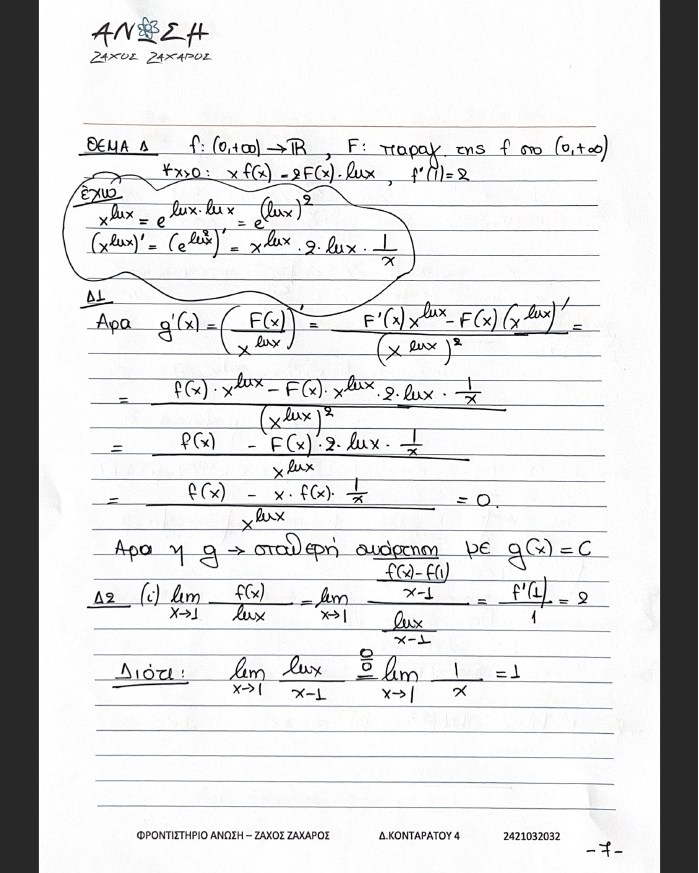 ΑΝΩΣΗ
ΖΑΧΟΣ ΖΑΧΑΡΟΣ
ΘΕΜΑ Δ f: (0,+∞) → ℝ , F: παραγ. της f στο (0,+∞)
∀x>0: x f(x) - 2F(x)·lnx , f'(1)=2
έχω
x^lnx = e^lnx·lnx = e^(lnx)^2
(x^lnx)' = (e^ln²x)' = x^lnx · 2·lnx · 1/x
Δ1
Άρα g'(x) = (F(x)/x^lnx)' = (F'(x) x^lnx - F(x)(x^lnx)')/(x^lnx)^2 =
= (f(x)·x^lnx - F(x)·x^lnx·2·lnx·1/x)/(x^lnx)^2
= (f(x) - F(x)·2·lnx·1/x)/x^lnx
= (f(x) - x·f(x)·1/x)/x^lnx = 0.
Άρα η g → σταθερή συνάρτηση με g(x) = C
Δ2 (i) lim x→1 f(x)/lnx = lim x→1 ((f(x)-f(1))/(x-1))/(lnx/(x-1)) = f'(1)/1 = 2
Διότι: lim x→1 lnx/(x-1) =(0/0) lim x→1 1/x = 1
ΦΡΟΝΤΙΣΤΗΡΙΟ ΑΝΩΣΗ – ΖΑΧΟΣ ΖΑΧΑΡΟΣ Δ.ΚΟΝΤΑΡΑΤΟΥ 4 2421032032
-7-